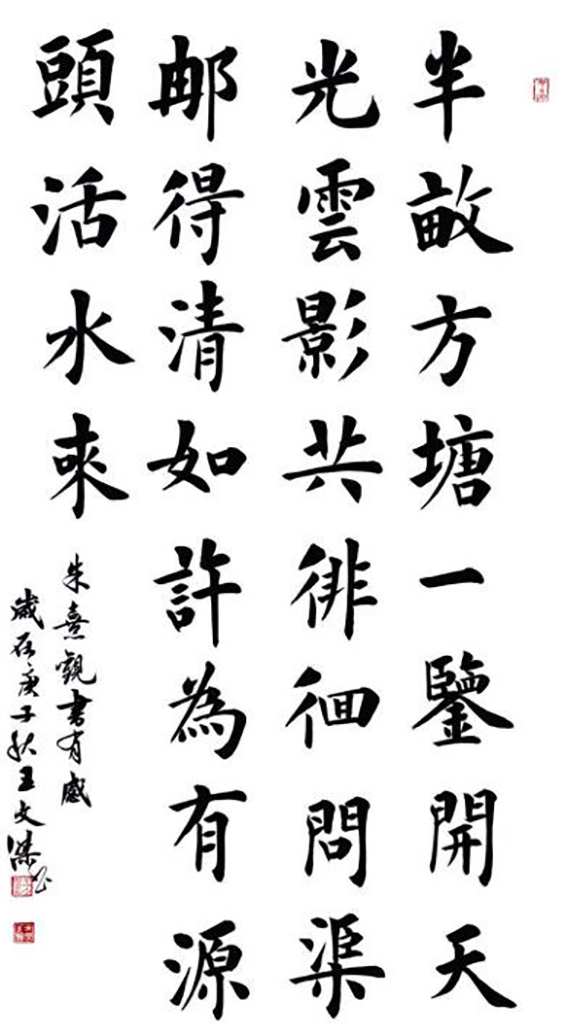 半畝方塘一鑒開天
光雲影共徘徊問渠
那得清如許為有源
頭活水來
朱熹觀書有感
歲在庚子秋王文傑书